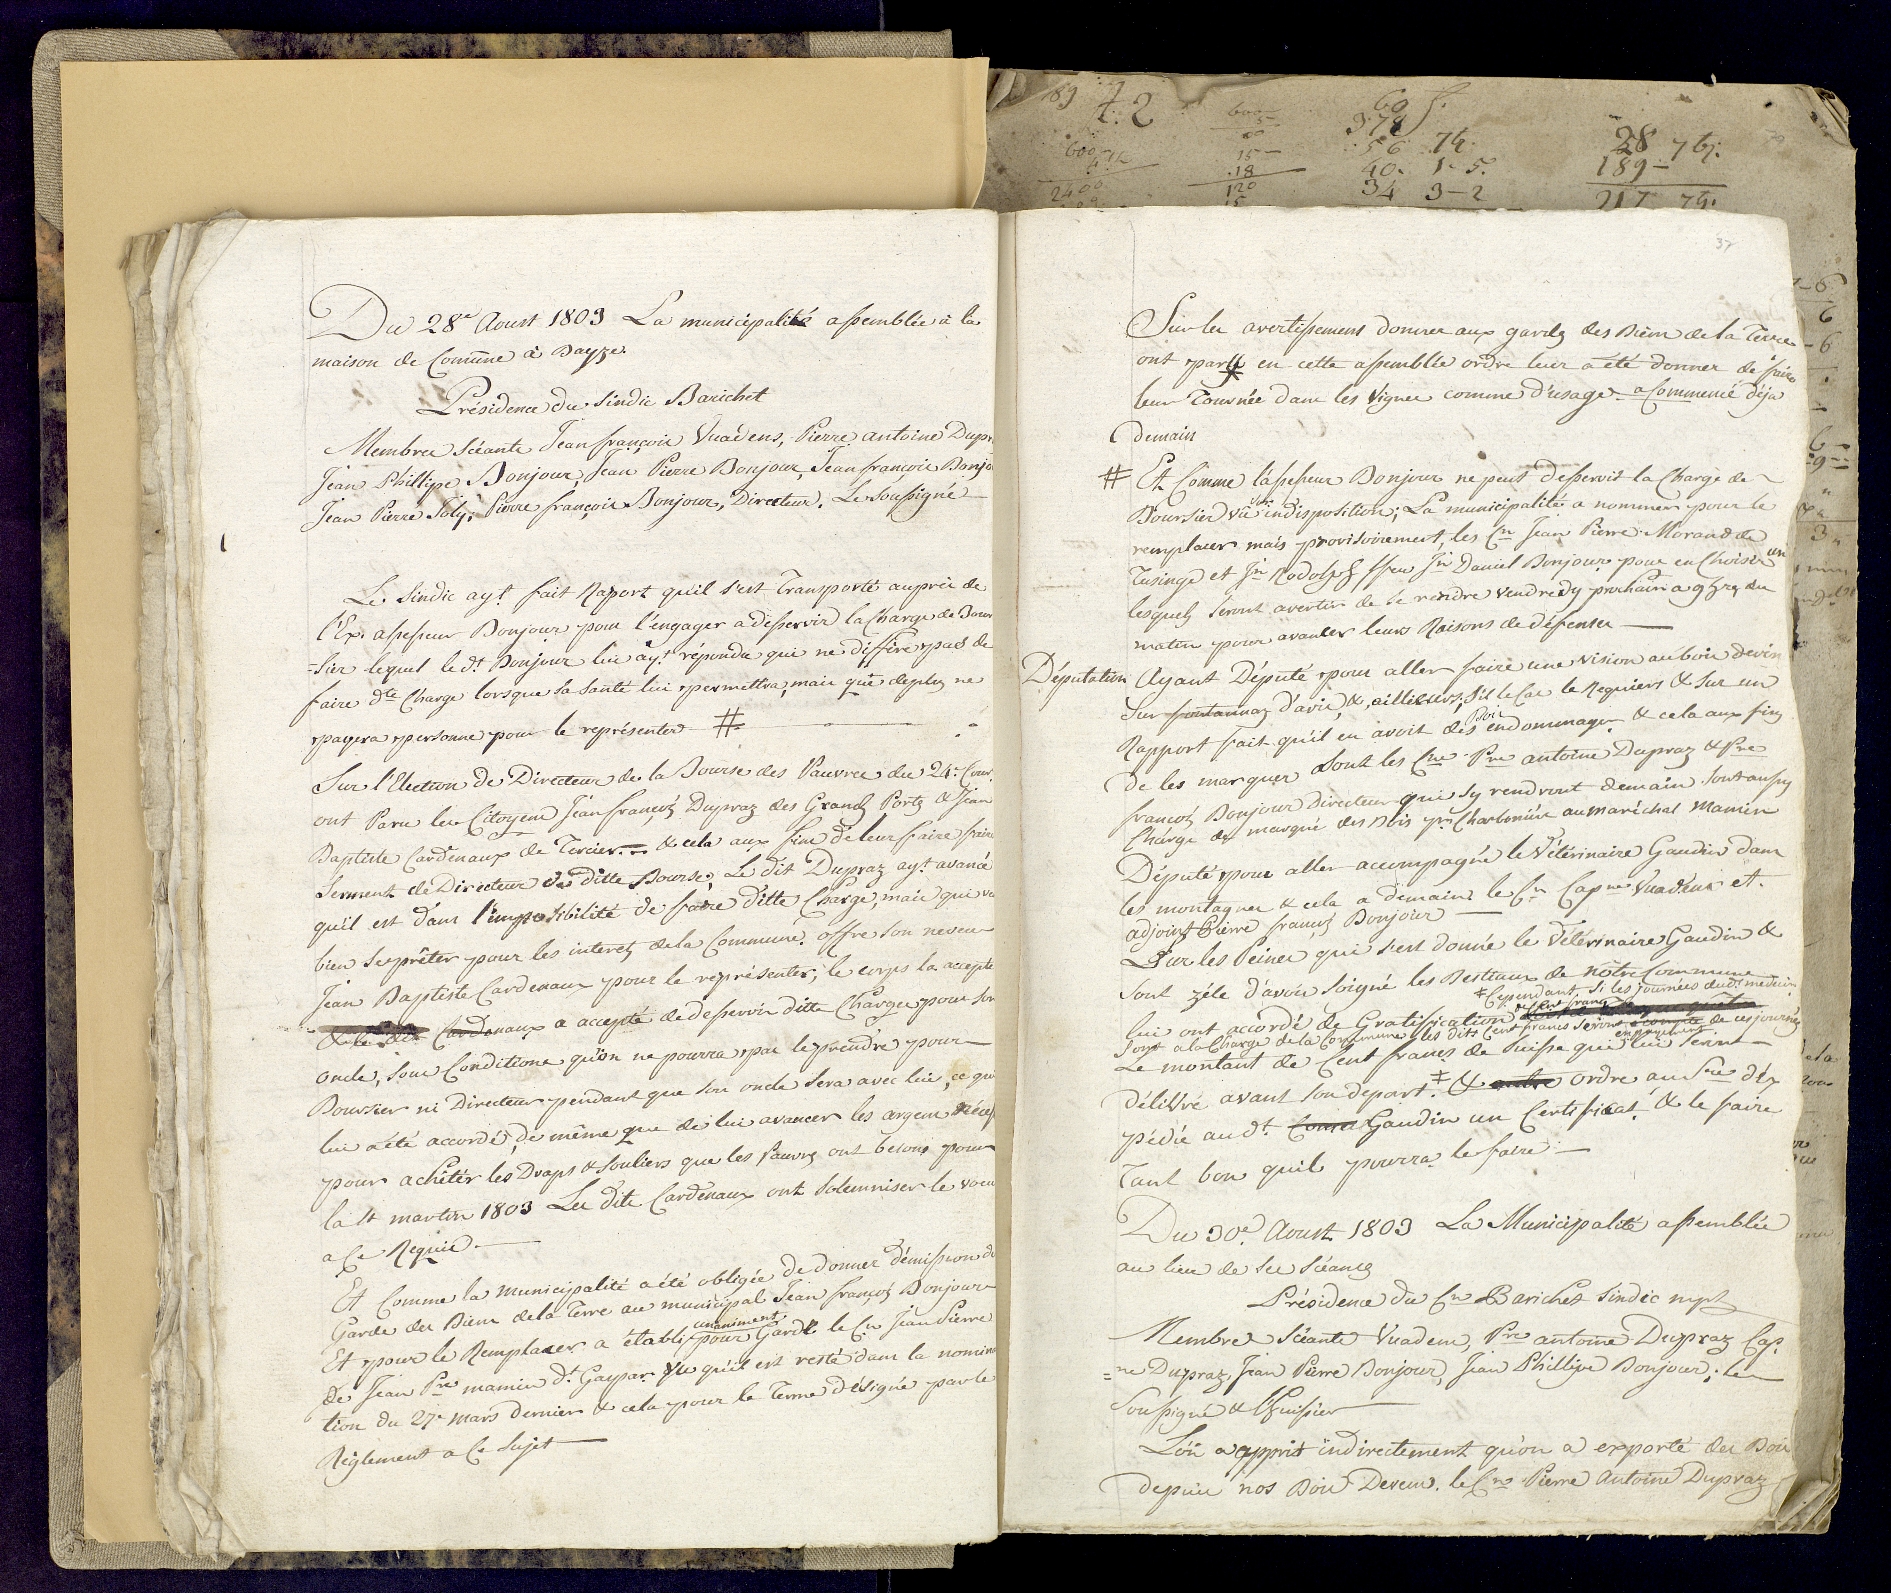 Du 28e Aoust 1803 La municipalité assemblée à la
maison de Comune à Bayze.
Présidence du Sindic Barichet
Membres Séants Jean françois Vuadens, Pierre antoine Dupr
Jean Phillipe Bonjour, Jean Pierre Bonjour, Jean françois Bonjo
Jean Pierre Soly, Pierre françois Bonjour, Directeur. Le Soussigné
Le Sindic ayt. fait Raport qu'il s'est Transporté auprès de
l'Ex. assesseur Bonjour pour l'engager a desservir la Charge de Bour
-sier lequel le dt. Bonjour lui ayt. répondu qui ne diffère pas de
faire dte Charge lorsque sa santé lui permettra, mais que deplus ne
payera personne pour le représenter #
Sur l'Election de Directeur de la Bourse des Pauvres du 24e Cour.
ont Paru les Citoyens Jean françois Dupraz des Grands Ports & Jean
Baptiste Cardenaux de Tercier & cela aux fins de leur faire faire
Serment de Directeur de ditte Bourse; Le dit Dupraz ayt. avancé
qu'il est dans l'impossibilité de faire ditte Charge, mais qui va
bien se prêter pour les interets de la Commune. offre son neveu
Jean Baptiste Cardenaux pour le représenter; le corps la accepte
& le dit Cardenaux a accepté de desservir ditte Charge pour son
oncle, sous Conditions qu'on ne pourra pas le prendre pour
Boursier ni Directeur pendant que son oncle sera avec lui, ce qui
lui a été accordé, de même que de lui avancer les argens néces
pour achêter les Draps & Souliers que les Pauvres ont besoins pour
la St martin 1803 Les dits Cardenaux ont Solemniser le voeu
a Ce Requis.
Et Comme la municipalité a été obligée de donner démission de
Garde des Biens de la Terre au municipal Jean françois Bonjour
unaniment
Et pour le Remplacer a établi pour Garde le Cn Jean Pierre
de Jean Pre mamin dt. Gaspar Vu qu'il est resté dans la nomina
tion du 27e mars dernier & cela pour le Terme désigné par le
Règlement a Ce Sujet
37
Sur les avertissemens donnés aux gards des Biens de la Terre
ont paru en cette assemblée ordre leur a été donner de faire
leur Tournée dans les Vignes comme d'usage a Commencé déja
demain
# Et Comme l'assesseur Bonjour ne peut desservir la Charge de
Boursier vû son indisposition; La municipalité a nommer pour le
remplacer mais provisoirement, les Cn Jean Pierre Morand de
Tusinge et Jn Rodolph ffeu Jn Daniel Bonjour pour en Choisir un
lesquels seront avertis de se rendre Vendredy prochain a 9 hres du
matin pour avancer leurs Raisons de défenses
Députation Ayant Député pour aller faire une vision au bois devin
Sur fontannaz d'avis, & ailleurs, s'il le Cas le Requiers & Sur un
Rapport fait qu'il en avoit des Bois endommager & cela aux fins
de les marquer Sont les Cns Pre antoine Dupraz & Pre
françois Bonjour directeur qui Sy rendront demain Sont aussy
Chârgé de marqué des Bois pr Charbonière au maréchal Mamin
Député pour aller accompagné le Vétérinaire Gaudin dans
les montagnes & cela a demain le Cn Capne Vuadens et.
adjoint Pierre françs Bonjour
Sur les Peines qui s'est donnée le Vétérinaire Gaudin &
Sont zéle d'avoir Soigné les Bestiaux de nôtre Commune
‡ Cependant si les journées dudt. médecin
lui ont accordé de Gratification
sont a la Charge de la Commune les dits Cent francs seront a compte de ces journés
Le montant de Cent francs de Suisse qui lui seront
délivré avant son depart. ‡ & ordre au Sre déx
pédié au dt. Gaudin un Certificat. & le faire
Tant bon quil pourra le faire
Du 30e. Aoust 1803 La Municipalité assemblée
au lieu de Ses Séances
Présidence du Cn Barichet Sindic
Membres Séants Vuadens, Pre antoine Dupraz Cap.
=ne Dupraz, Jean Pierre Bonjour, Jean Phillipe Bonjour; le
Soussigné & l'Huissier
L'on a apprit indirectement qu'on a exporté des Bois
depuis nos Bois Devens. le Cn Pierre Antoine Dupraz